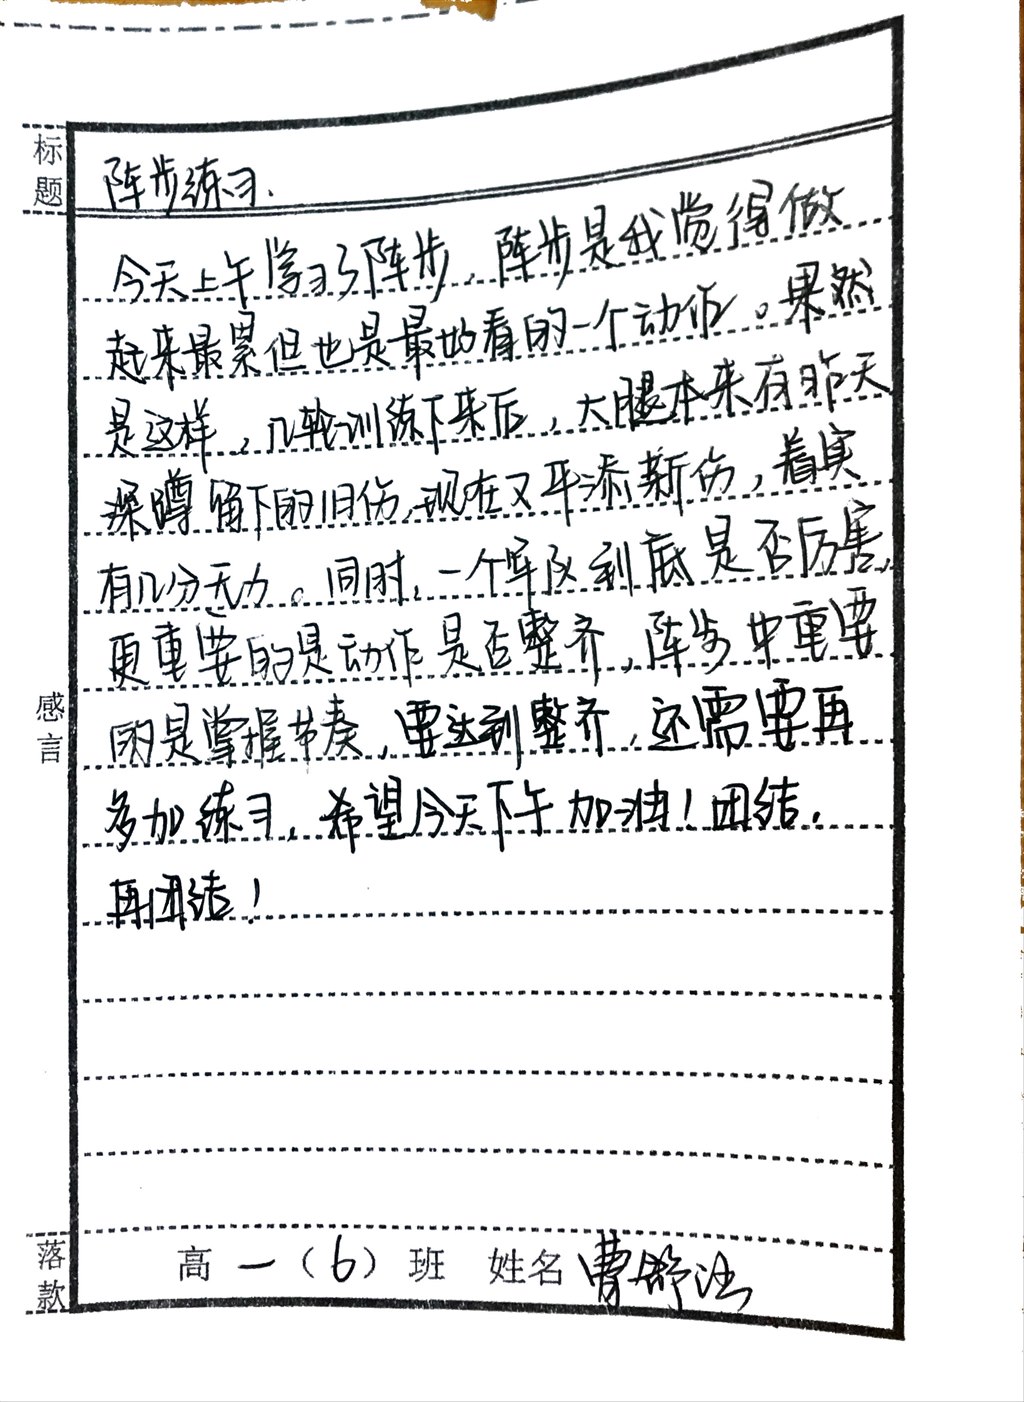 标题
阵步练习.
今天上午学习了阵步，阵步是我觉得做
起来最累但也是最好看的一个动作。果然
是这样，几轮训练下来后，大腿本来有昨天
深蹲留下的旧伤，现在又平添新伤，着实
有几分无力。同时，一个军队到底是否厉害，
更重要的是动作是否整齐，阵步中重要
的是掌握节奏，要达到整齐，还需要再
多加练习，希望今天下午加油！团结，
再团结！
感言
落款
高一（6）班 姓名曹舒